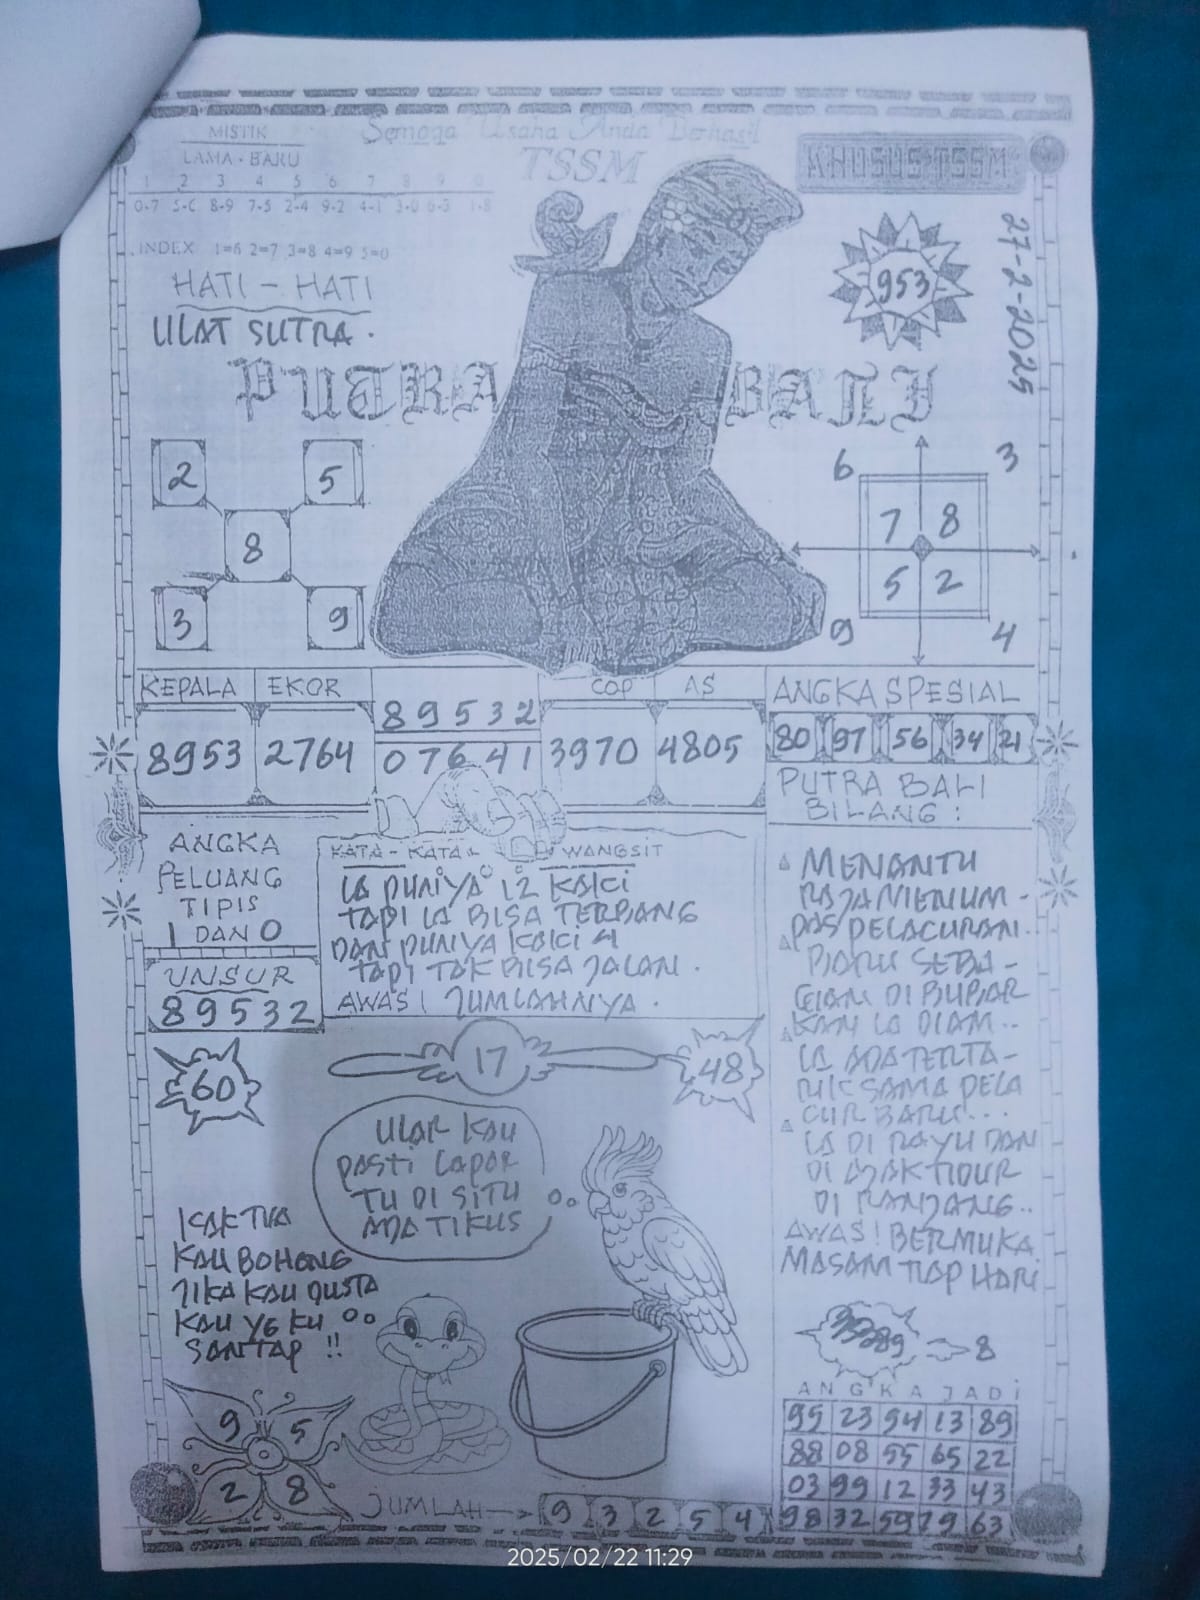 Semoga Usaha Anda Berhasil
TSSM
MISTIK
LAMA - BARU
1 2 3 4 5 6 7 8 9 0
0-7 5-C 8-9 7-5 2-4 9-2 4-1 3-0 6-3 1-8
INDEX 1=6 2=7 3=8 4=9 5=0
KHUSUS TSSM
27-2-2025
953
HATI - HATI
ULAT SUTRA.
PUTRA BALI
2 5
8
3 9
6 3
7 8
5 2
9 4
KEPALA EKOR COP AS
8953 2764
89532
07641
3970 4805
ANGKA SPESIAL
80 97 56 34 21
ANGKA
PELUANG
TIPIS
1 DAN 0
UNSUR
89532
KATA - KATA WANGSIT
IA PUNYA 12 KAKI
TAPI IA BISA TERBANG
DAN PUNYA KAKI 4
TAPI TAK BISA JALAN.
AWAS! JUMLAHNYA.
PUTRA BALI
BILANG:
MENANTU
RAJA MENUM-
PAS PELACURAN.
BARU SEBA-
GIAN DI BUBAR
KAN IA DIAM..
IA ADA TERTA-
RIK SAMA PELA
CUR BARU...
IA DI RAYU DAN
DI AJAK TIDUR
DI RANJANG..
AWAS! BERMUKA
MASAM TIAP HARI
60
17
48
ULAR KAU
PASTI LAPAR
TU DI SITU
ADA TIKUS
KAKTUA
KAU BOHONG
JIKA KAU DUSTA
KAU YG KU
SANTAP !!
9 5
2 8
JUMLAH 9 3 2 5 4
8
ANGKA JADI
95 23 94 13 89
88 08 55 65 22
03 99 12 33 43
98 32 59 79 63
2025/02/22 11:29